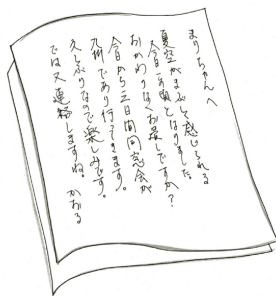 まりちゃんへ
夏空がまぶしく感じられる
今日この頃となりました。
おかわりなくお過しですか？
今日から三日間同窓会が
九州であり行ってきます。
久しぶりなので楽しみです。
では又連絡しますね。かおる